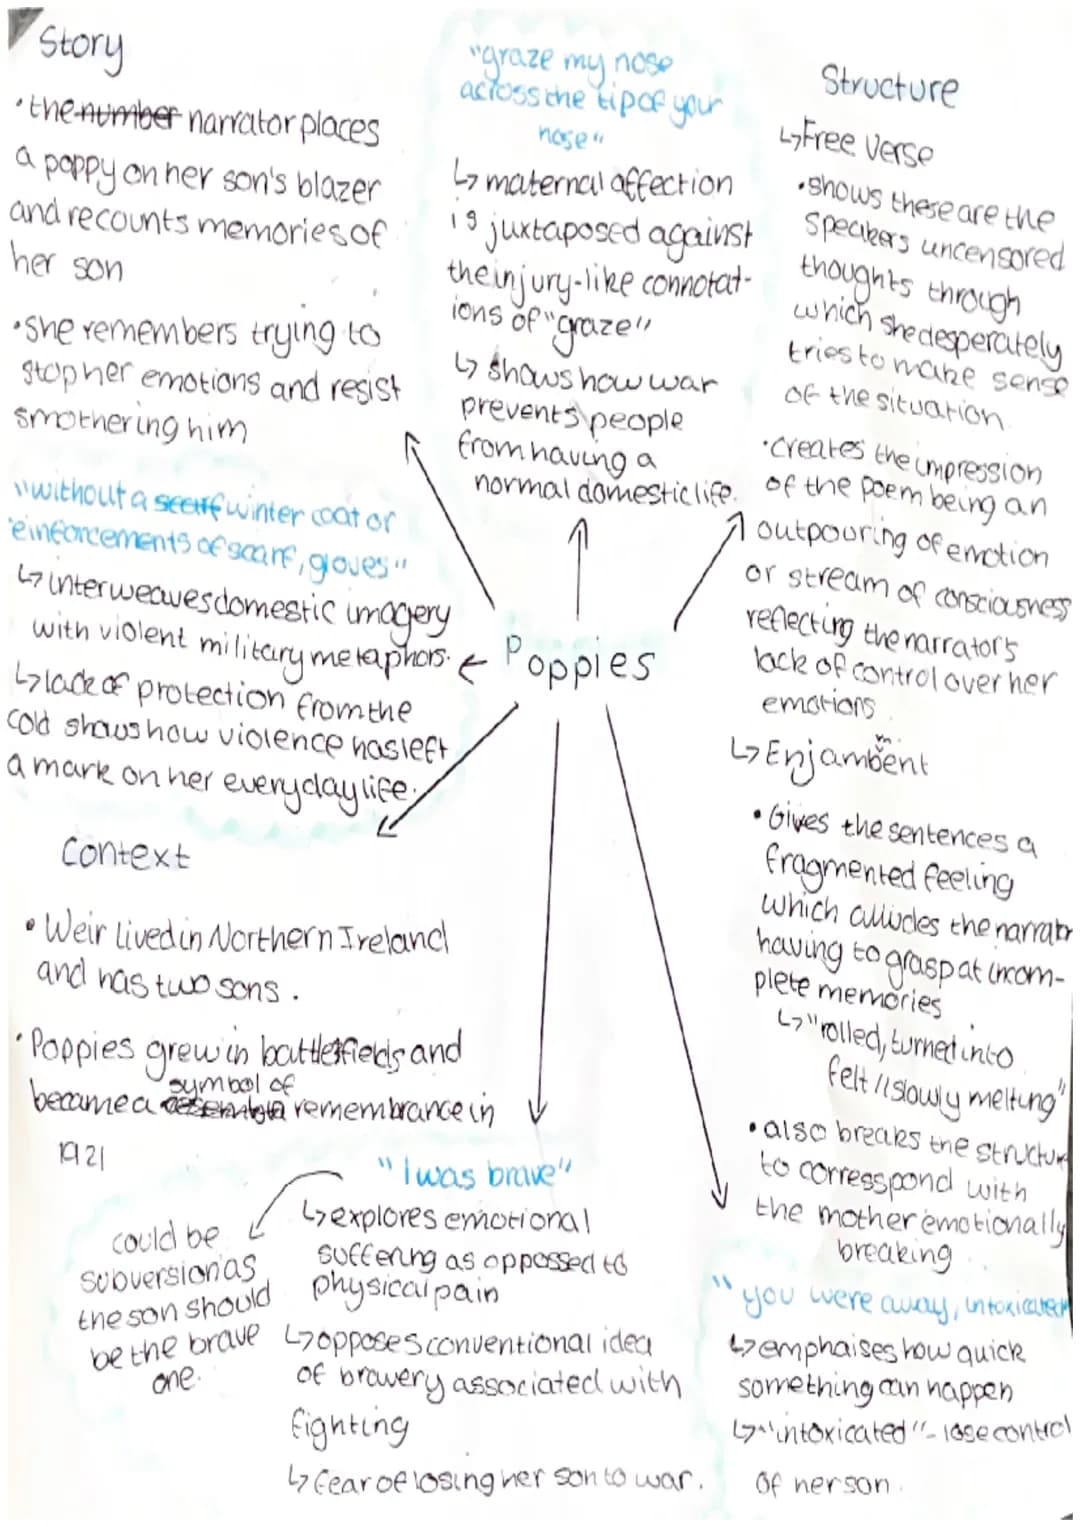 Story
•the number narrator places
a poppy on her son's blazer
and recounts memories of
her son
•She remembers trying to
stop her emotions and resist
smothering him
"without a scarf winter coat or
reinforcements of scarf, gloves"
↳interweaves domestic imagery
with violent military metaphors.
↳lack of protection from the
cold shows how violence has left
a mark on her everyday life.
"graze my nose
across the tip of your
nose"
↳ maternal affection
is juxtaposed against
the injury-like connotat-
ions of "graze"
↳ shows how war
prevents people
from having a
normal domestic life.
Structure
↳Free Verse
•shows these are the
speakers uncensored
thoughts through
which she desperately
tries to make sense
of the situation
•creates the impression
of the poem being an
outpouring of emotion
or stream of consciousness
reflecting the narrators
lack of control over her
emotions.
↳Enjambent
m
•Gives the sentences a
fragmented feeling
which alludes the narrator
having to grasp at incom-
plete memories
↳"rolled, turned into
felt // slowly melting"
•also breaks the structure
to corresspond with
the mother emotionally
breaking
Poppies
Context
• Weir lived in Northern Ireland
and has two sons.
•Poppies grew in battlefields and
became a symbol of remembrance in
1921
"I was brave"
↳explores emotional
suffering as oppossed to
physical pain
↳opposes conventional idea
of bravery associated with
fighting
↳fear of losing her son to war.
could be
subversion as
the son should
be the brave
one.
"you were away, intoxicated
↳emphaises how quick
something can happen
↳"intoxicated"- lose control
of her son.